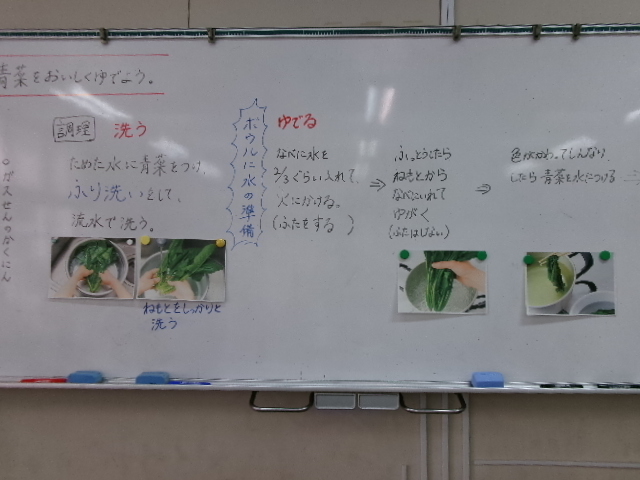 青菜をおいしくゆでよう。
調理 洗う
ためた水に青菜をつけ、
ふり洗いをして、
流水で洗う。
ねもとをしっかりと
洗う
○ガスせんのかくにん
ボウルに水の準備
ゆでる
なべに水を
2/3ぐらい入れて、
火にかける。
(ふたをする)
⇒
ふっとうしたら
ねもとから
なべにいれて
ゆがく
(ふたはしない)
⇒
色がかわってしんなり
したら青菜を水につける